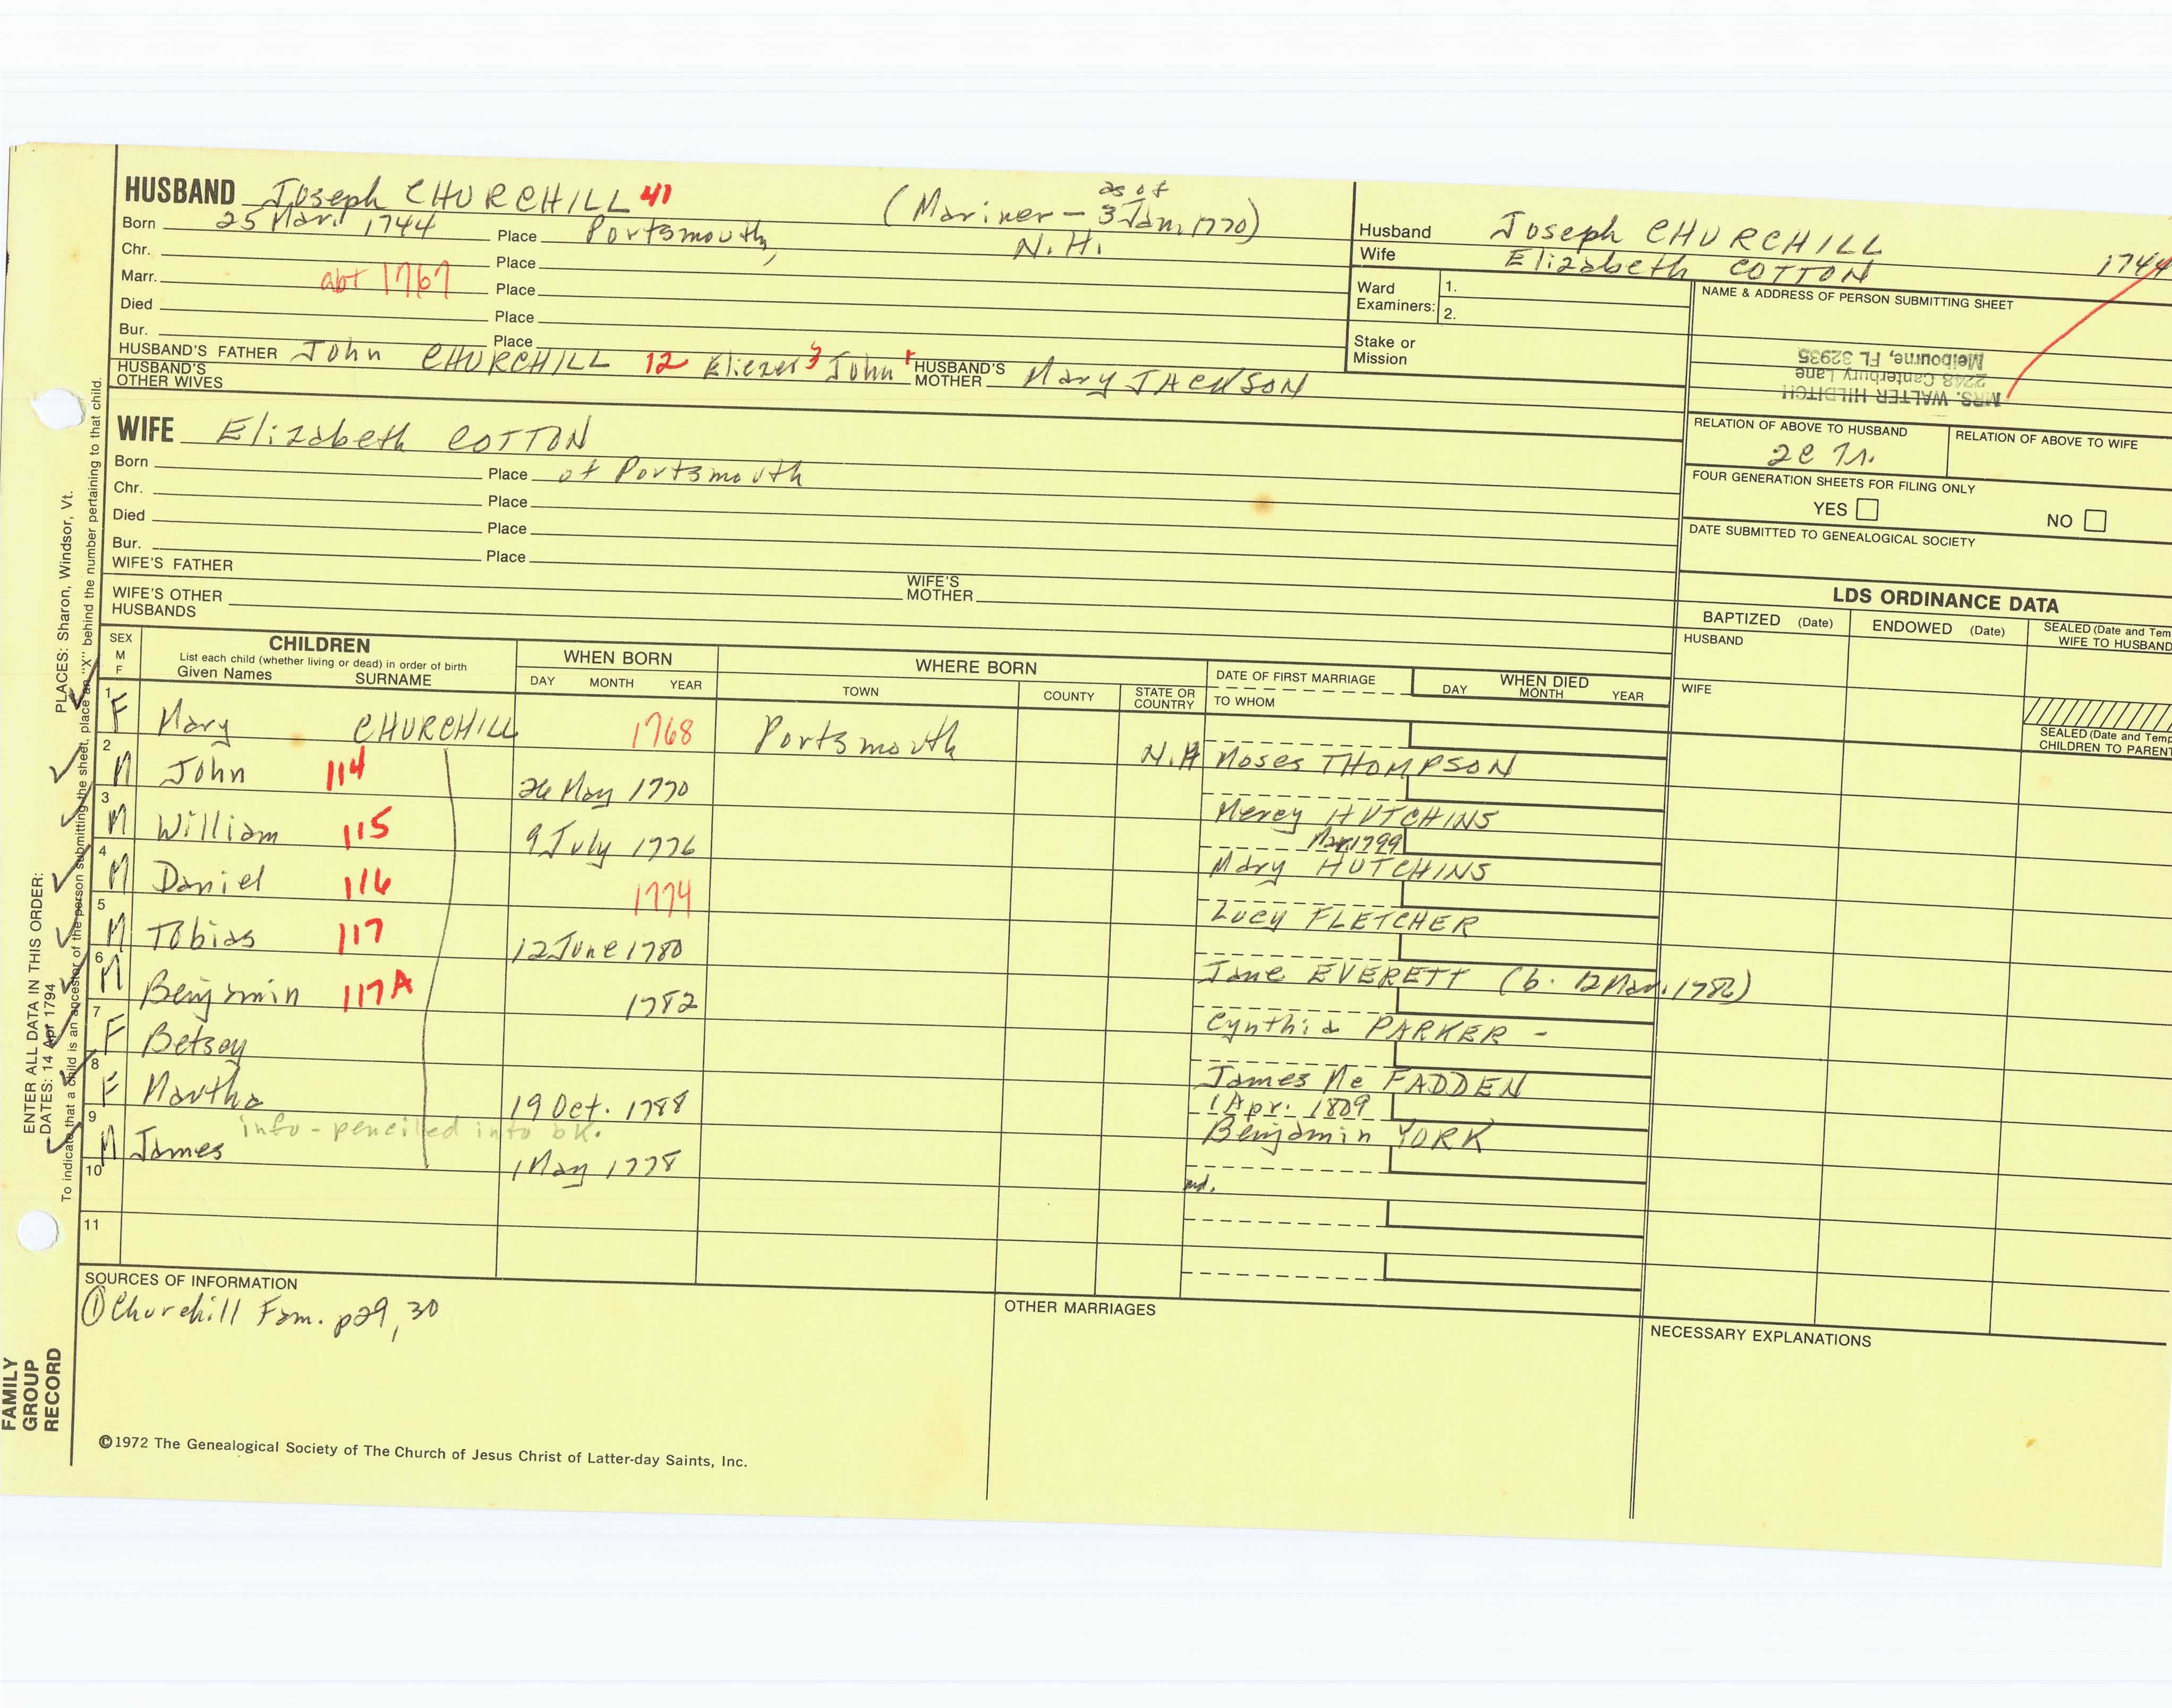 HUSBAND Joseph CHURCHILL 41 (Mariner - as of 3 Jan. 1770)
Born 25 Mar. 1744 Place Portsmouth, N.H.
Chr. Place
Marr. abt 1767 Place
Died Place
Bur. Place
HUSBAND'S FATHER John CHURCHILL 12 Eliezer 3 John HUSBAND'S MOTHER Mary JACKSON
HUSBAND'S OTHER WIVES
Husband Joseph CHURCHILL 1744
Wife Elizabeth COTTON
Ward Examiners: 1.
2.
Stake or Mission
NAME & ADDRESS OF PERSON SUBMITTING SHEET
MRS. WALTER HILDITCH
2248 Canterbury Lane
Melbourne, FL 32935
RELATION OF ABOVE TO HUSBAND
RELATION OF ABOVE TO WIFE
FOUR GENERATION SHEETS FOR FILING ONLY
YES NO
DATE SUBMITTED TO GENEALOGICAL SOCIETY
WIFE Elizabeth COTTON
Born Place of Portsmouth
Chr. Place
Died Place
Bur. Place
WIFE'S FATHER WIFE'S MOTHER
WIFE'S OTHER HUSBANDS
LDS ORDINANCE DATA
BAPTIZED (Date) ENDOWED (Date) SEALED (Date and Tem
WIFE TO HUSBAND
HUSBAND
WIFE
SEALED (Date and Temp
CHILDREN TO PARENT
SEX M F
CHILDREN
List each child (whether living or dead) in order of birth
Given Names SURNAME
WHEN BORN
DAY MONTH YEAR
WHERE BORN
TOWN COUNTY STATE OR COUNTRY
DATE OF FIRST MARRIAGE
TO WHOM
WHEN DIED
DAY MONTH YEAR
1 F Mary CHURCHILL 1768 Portsmouth N.H Moses THOMPSON
2 M John 114 26 May 1770 Mercy HUTCHINS
3 M William 115 9 July 1776 Mar. 1799 Mary HUTCHINS
4 M Daniel 116 1774 Lucy FLETCHER
5 M Tobias 117 12 June 1780 Jane EVERETT (b. 12 Mar. 1786)
6 M Benjamin 117A 1782 Cynthia PARKER -
7 F Betsey James Mc FADDEN
8 F Martha 19 Oct. 1788 1 Apr. 1809 Benjamin YORK
info - penciled into bk.
9 M James 1 May 1778 md.
10
11
SOURCES OF INFORMATION
① Churchill Fam. p29, 30
OTHER MARRIAGES
NECESSARY EXPLANATIONS
©1972 The Genealogical Society of The Church of Jesus Christ of Latter-day Saints, Inc.
FAMILY GROUP RECORD
ENTER ALL DATA IN THIS ORDER:
DATES: 14 Apr 1794
PLACES: Sharon, Windsor, Vt.
To indicate that a child is an ancestor of the person submitting the sheet, place an "X" behind the number pertaining to that child.